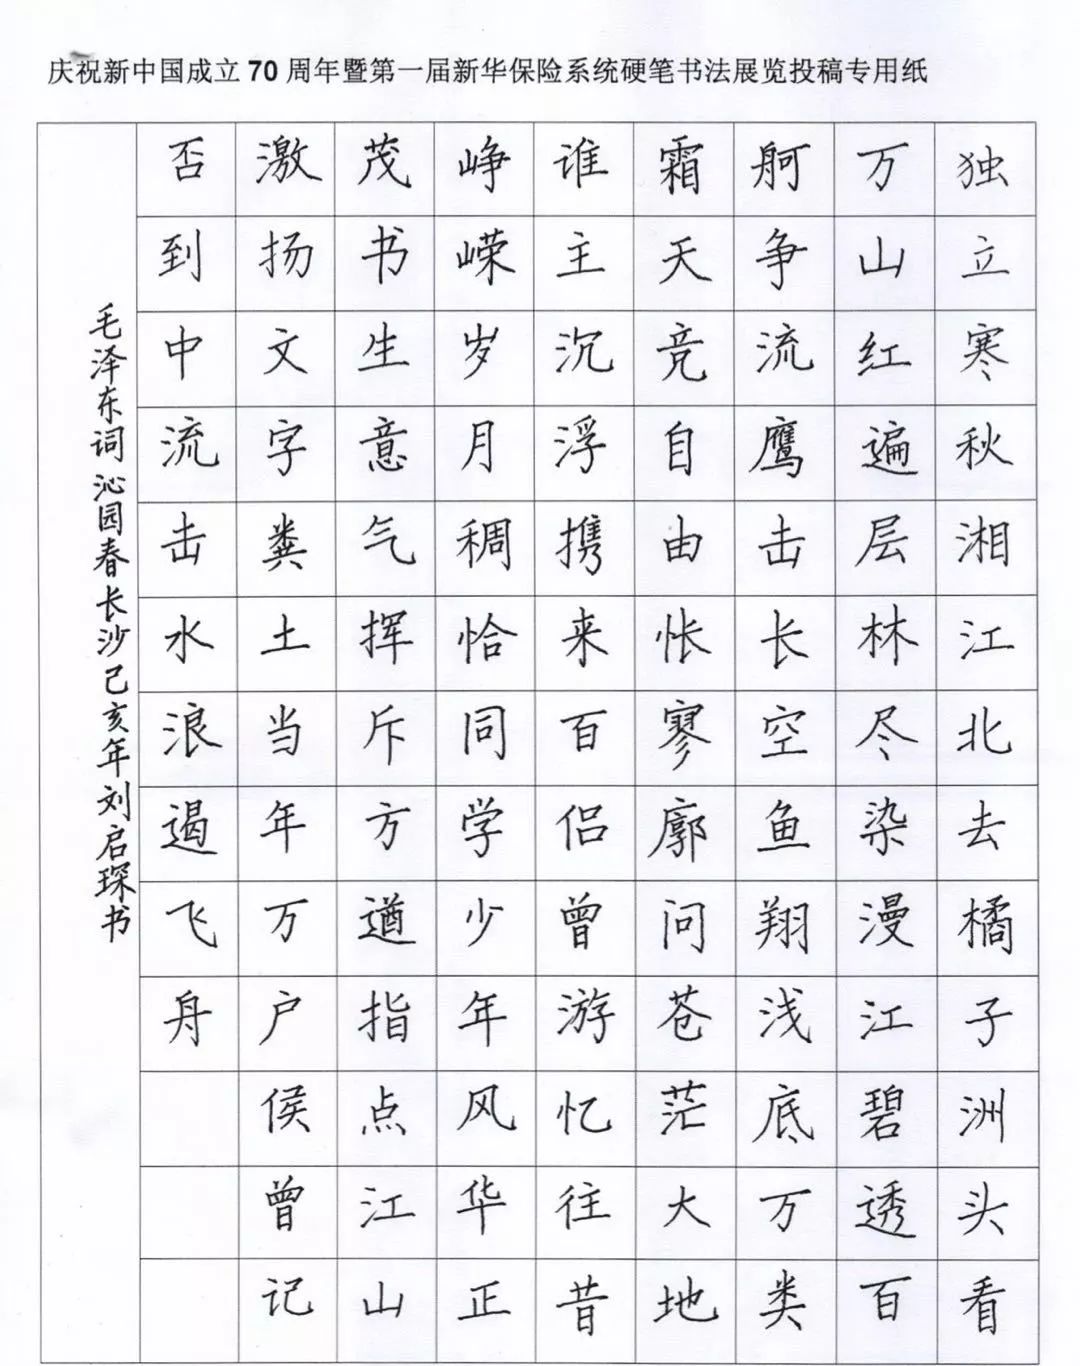 庆祝新中国成立70周年暨第一届新华保险系统硬笔书法展览投稿专用纸
独立寒秋湘江北去橘子洲头看
万山红遍层林尽染漫江碧透百
舸争流鹰击长空鱼翔浅底万类
霜天竞自由怅寥廓问苍茫大地
谁主沉浮携来百侣曾游忆往昔
峥嵘岁月稠恰同学少年风华正
茂书生意气挥斥方遒指点江山
激扬文字粪土当年万户侯曾记
否到中流击水浪遏飞舟
毛泽东词沁园春长沙己亥年刘启琛书